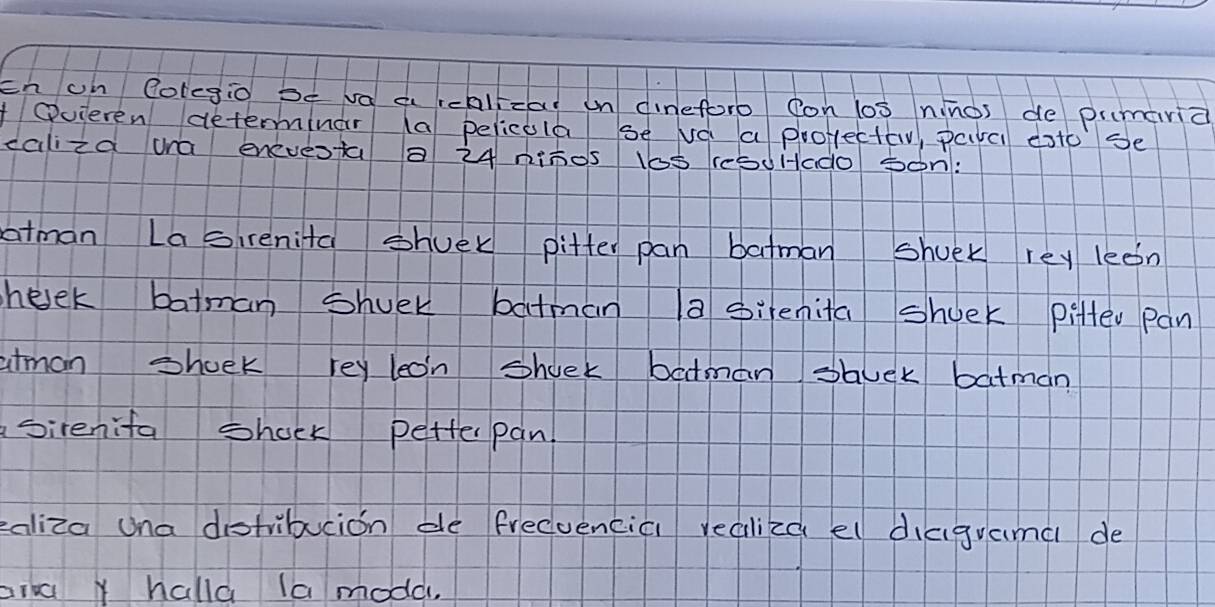 En un Colegio se va a realizar un cineforo con los niños de primaria
Quieren determinar la pelicula se va a proyectar, para esto se
ealiza una encuesta a 24 niños los resultado son:
atman La sirenita shuek pitter pan batman shuek rey león
hek batman shuek batman la sirenita shuek pitter pan
atman shuek rey león shuek batman shuek batman
sirenita shuek petter pan.
ealiza una distribución de frecuencia realiza el diagrama de
y halla la moda.